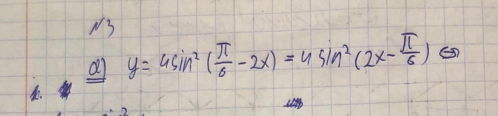 №3
а) y = 4sin²(π/6 - 2x) = 4sin²(2x - π/6) ⇔